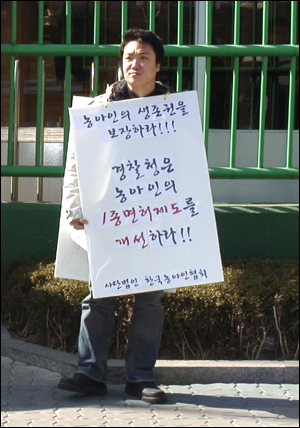 농아인의 생존권을
보장하라!!!
경찰청은
농아인의
1종면허제도를
개선하라!!
사단법인 한국농아인협회